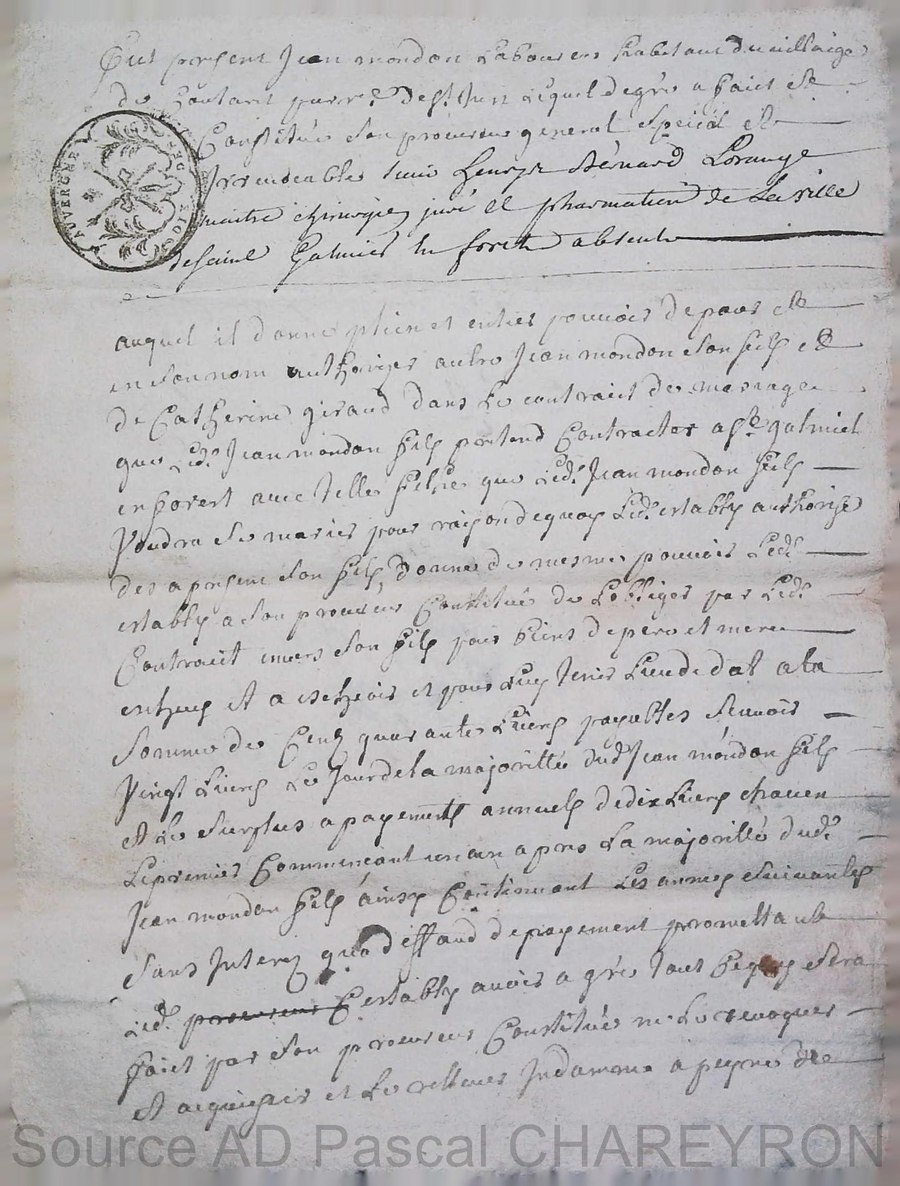 Fut present Jean mondon Laboureur habitant du villaige
de Contant parr.e de st Just Lequel de gré a faict et
Constitué son procureur general special et
Irrevocable sieur Bernard Lorange
maitre chirurgien juré et pharmatien de La ville
de saint Galmier En forest absent
auquel il donne plein et entier pouvoir de pour et
en son nom authoriser autre Jean mondon son fils et
de Catherine giraud dans Le contrait de mariage
que Led. Jean mondon fils pretend Contracter a st galmiet
en forest avec telle fille que Led. Jean mondon fils
voudra se marier pour raison de quoy Led. estably authorise
des a present son fils, donne de mesme pouvoir Led.
estably a son procureur Constitué de L'obliger par Led.
Contrait envers son fils pour biens de pere et mere
escheus et a escheoir et pour Luy tenir Lieu de dot a la
somme de Cent quarante Livres payables scavoir
vingt Livres Le Jour de la majoritté dud. Jean mondon fils
et Le surplus a payements annuels de dix Livres chacun
Le premier Commencant un an apres La majoritté dud.
Jean mondon fils ainsy Continuant Les années suivantes
sans Interez qu'a deffaud de payement promettant
Led. procureur Estably avoir a gré tout ce quy sera
faict par son procureur Constitué ne Le revoquer
et acquiescer et Le rellever Indamne a peyne de
AUVERGNE
Source AD Pascal CHAREYRON